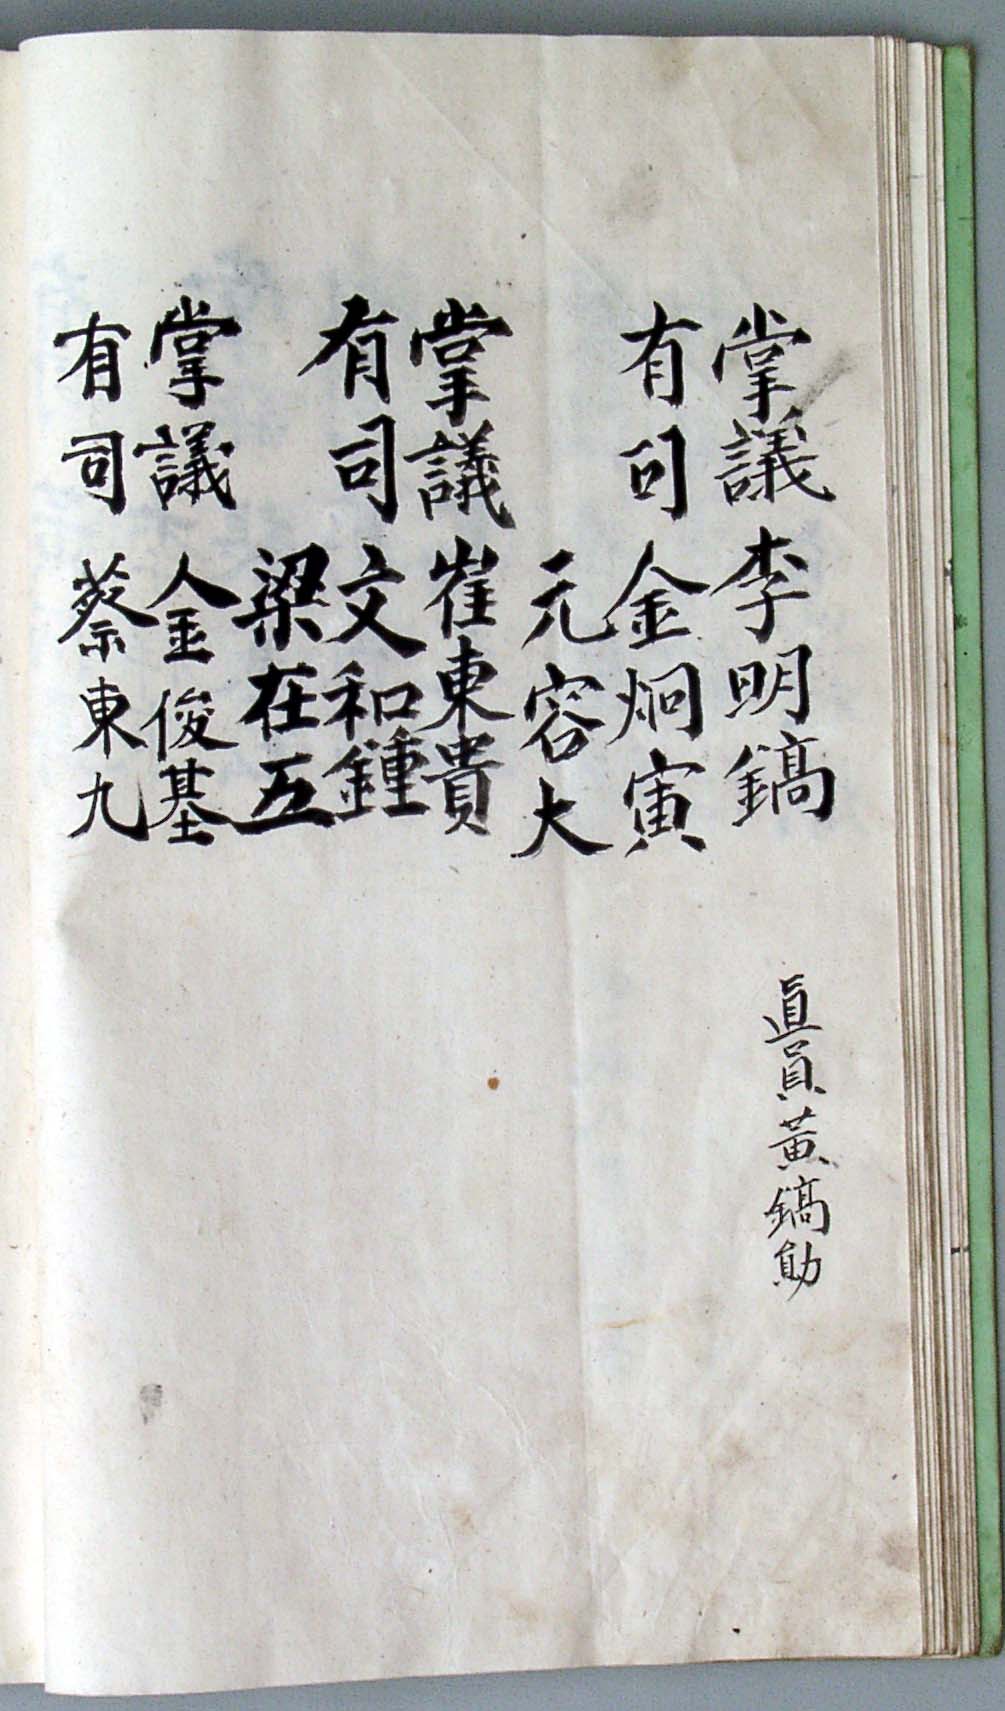 掌議李明鎬
直員黃鎬勛
有司金炯寅
元容大
掌議崔東貴
有司文和鍾
梁在五
掌議金俊基
有司蔡東九